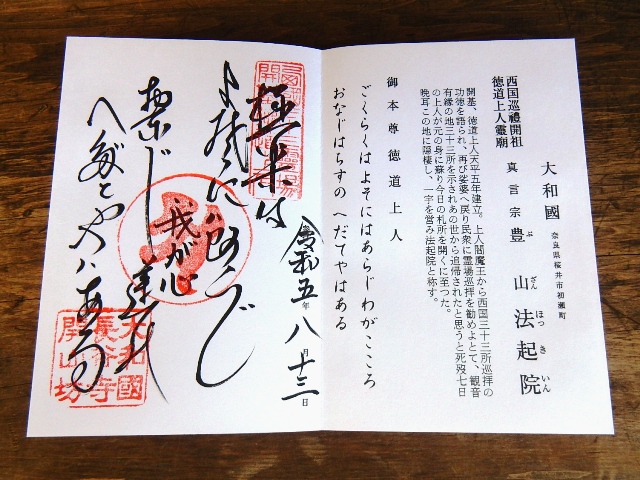 大和國 奈良県桜井市初瀬町
豊山法起院
ぶ ざん ほっ き いん
真言宗
西国巡禮開祖
徳道上人靈廟
開基、徳道上人天平五年建立。上人閻魔王から西国三十三所巡拝の
功徳を語られ、再び娑婆へ戻り民衆に霊場巡拝を勧めよとて、観音
有縁の地三十三所を示されあの世から追帰されたと思うと死歿七日
の上人が元の身に蘇り今日の札所を開くに至つた。
晩年この地に隠棲し、一宇を営み法起院と称す。
御本尊 徳道上人
ごくらくはよそにはあらじ わがこころ
おなじはちすの へだてやはある
令和五年八月十三日
極楽は
よそにはあらじ
我が心
同じ蓮の
へだてやはある
大和國
長谷寺
開山坊